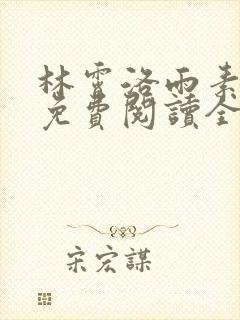 林雷洛雨素
免費閱讀全
宋宏謀